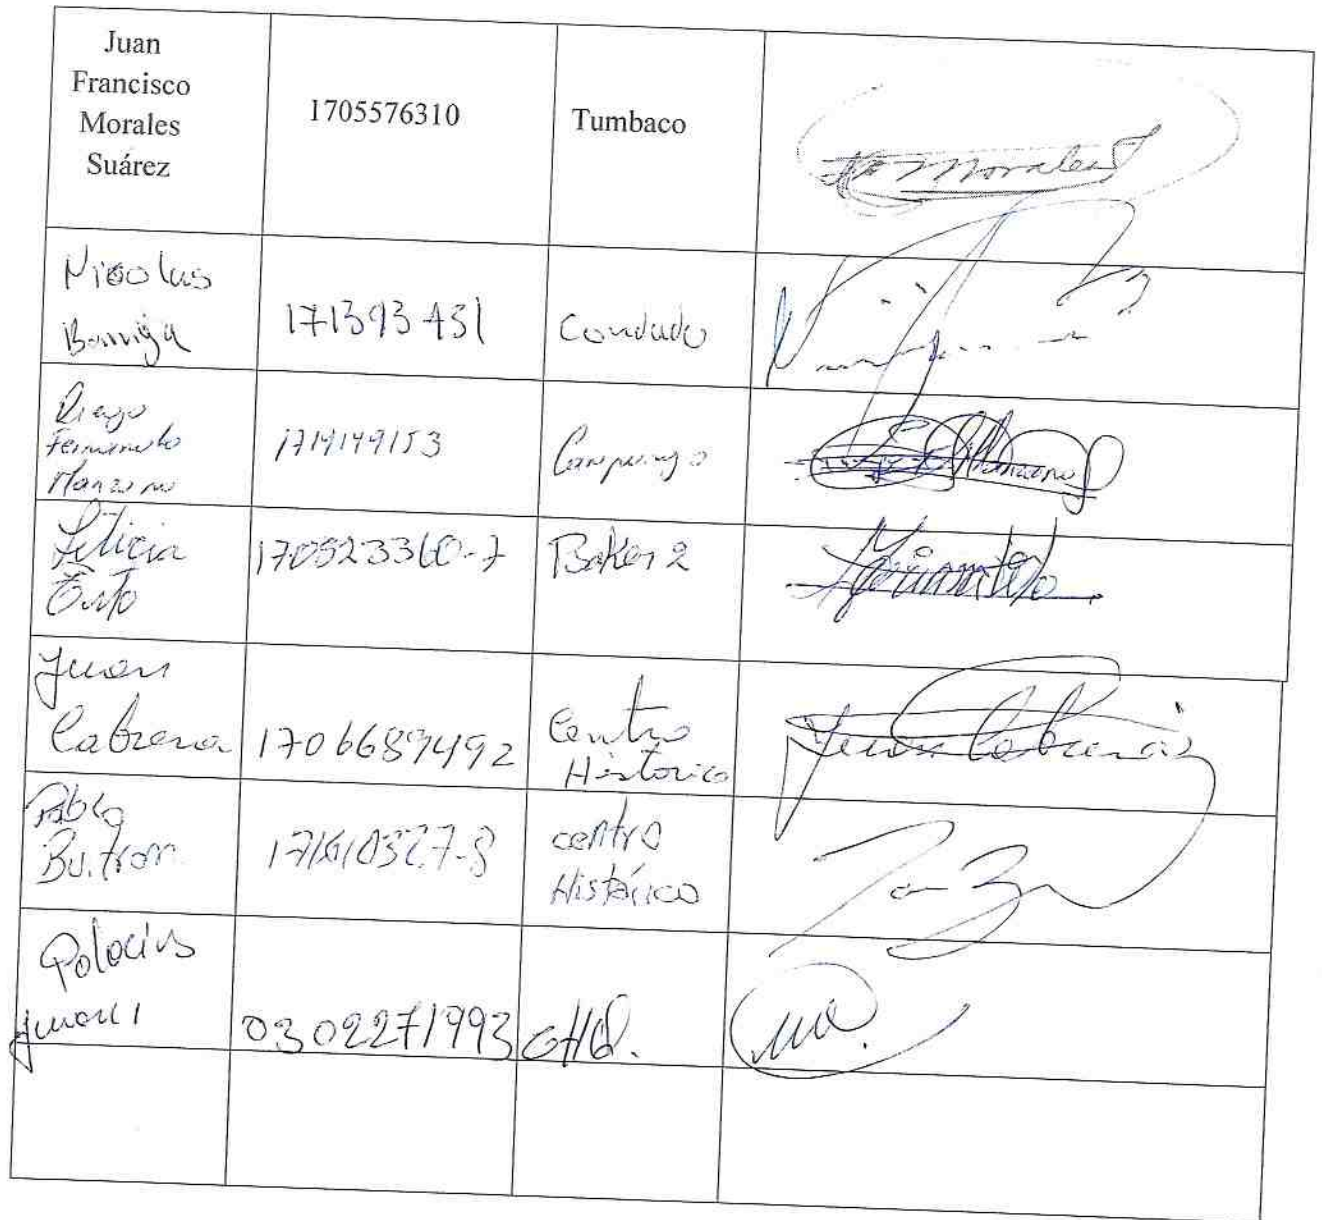 Juan
Francisco
Morales
Suárez
1705576310
Tumbaco
Morales
Nicolas
Barriga
171393431
Condado
Diego
Fernando
Manzano
1714149153
Carapungo
Manzano
Leticia
170523360-7
Baker 2
Juan
Cabrera
1706689492
Centro
Historico
Juan Cabrera
Pablo
Buitron
centro
Histórico
Palacios
0302271993